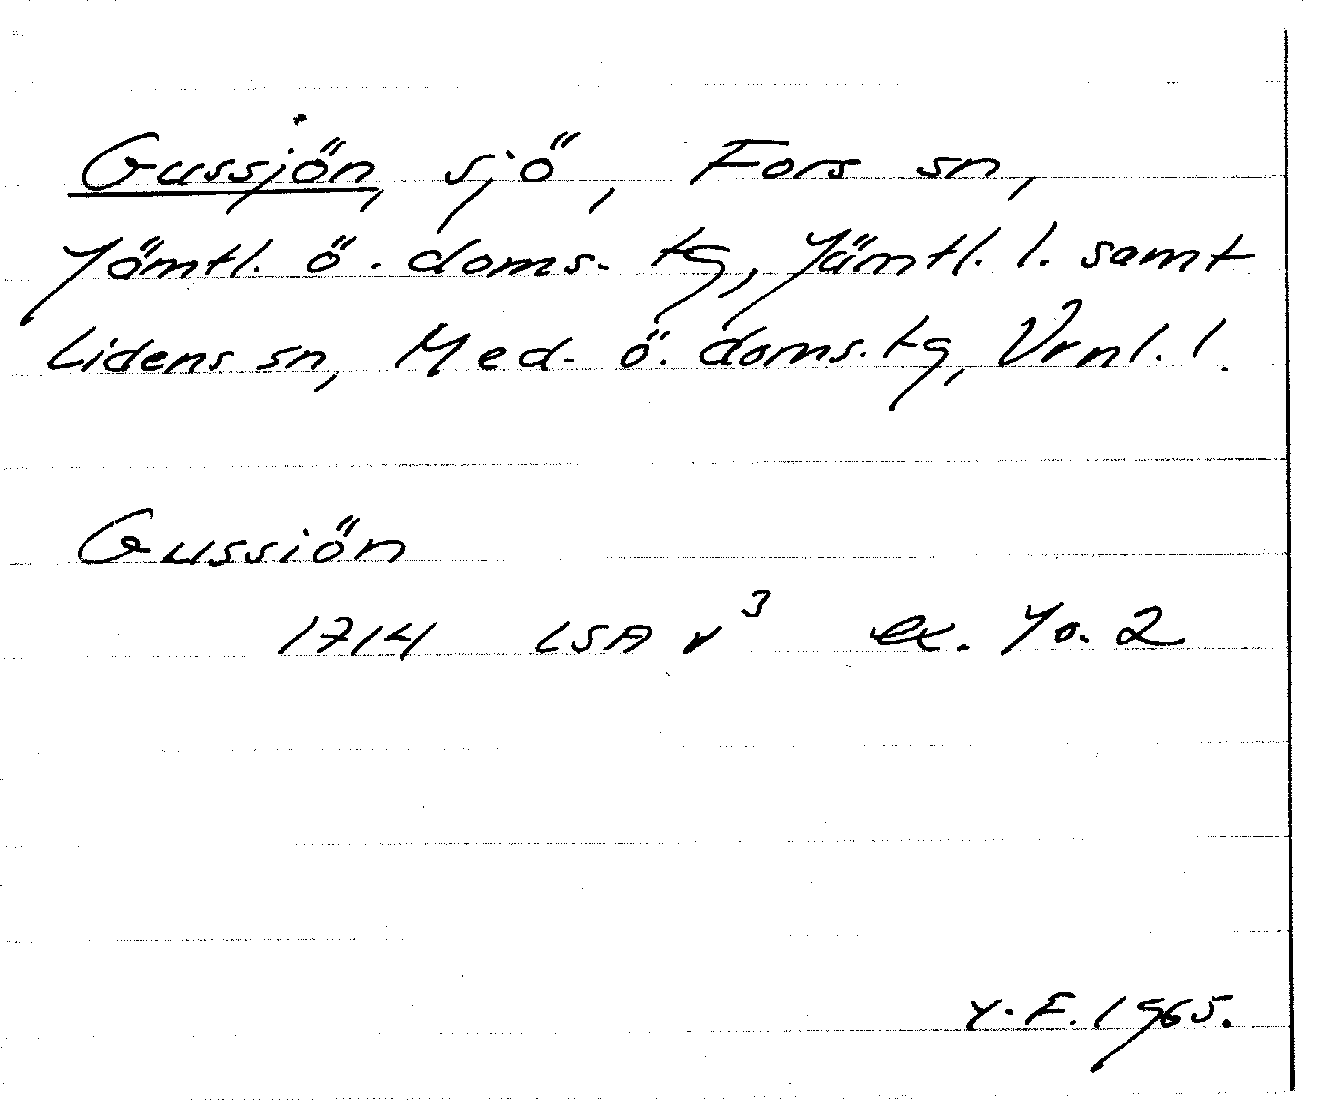 Gussjön, sjö, Fors sn,
Jämtl. ö. doms. tg, Jämtl. l. samt
Lidens sn, Med. ö. doms. tg, Vrnl. l.
Gussiön
1714 LSA v³ ex. Yo. 2
Y. F. 1965.